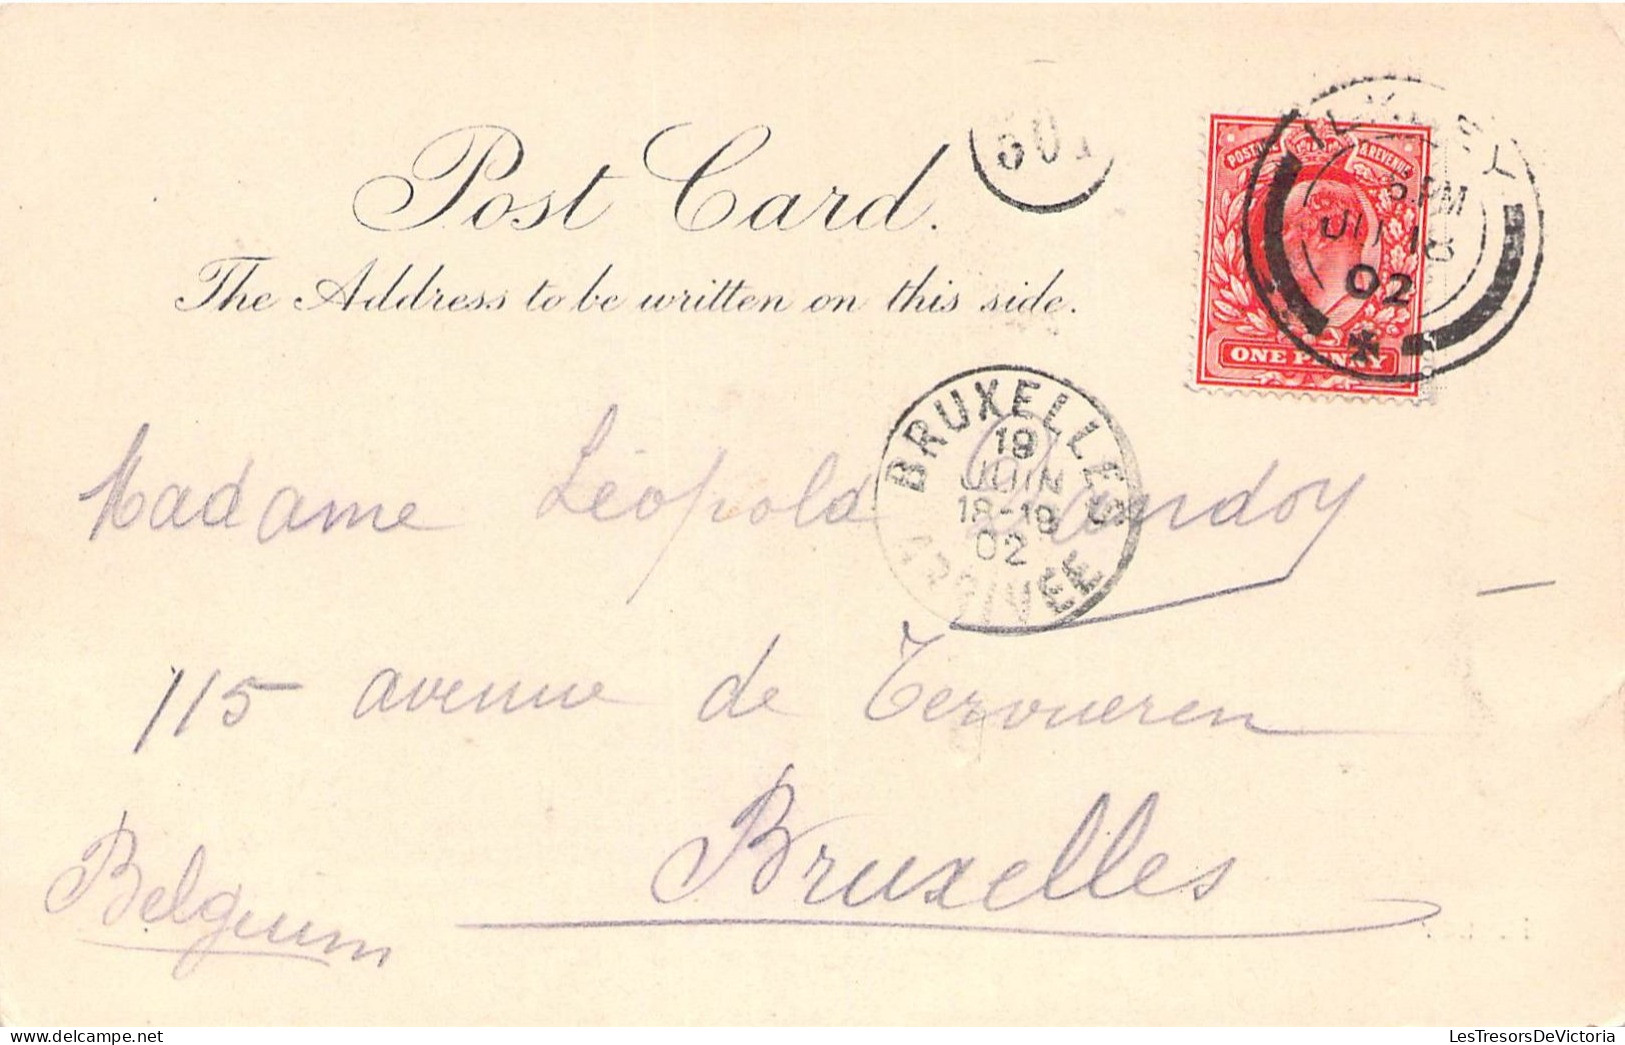 Post Card.
The Address to be written on this side.
POSTAGE & REVENUE
ONE PENNY
ILKLEY
5 PM
18
02
BRUXELLES
19
JUIN
18-19
02
ARRIVEE
Madame Léopold
115 avenue de Tervueren
Bruxelles
Belgium
LesTresorsDeVictoria